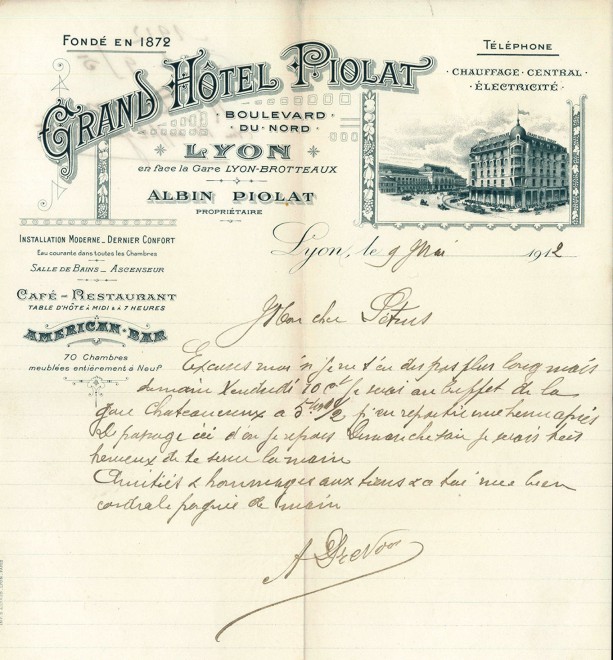 FONDÉ EN 1872
GRAND HÔTEL PIOLAT
BOULEVARD
DU NORD
LYON
en face la Gare LYON-BROTTEAUX
ALBIN PIOLAT
PROPRIÉTAIRE
TÉLÉPHONE
CHAUFFAGE CENTRAL
ÉLECTRICITÉ
INSTALLATION MODERNE _ DERNIER CONFORT
Eau courante dans toutes les Chambres
SALLE DE BAINS _ ASCENSEUR
CAFÉ - RESTAURANT
TABLE D'HÔTE à MIDI & à 7 HEURES
AMERICAN-BAR
70 Chambres
meublées entièrement à Neuf
Lyon, le 9 Mai 1912
Mon cher
Excuses moi si je ne t'en dis pas plus long mais
demain Vendredi 10 ct je serai au buffet de la
gare Chateaucreux a 5 1/2, j'en repart une heure après
de passage ici d'où je repars Dimanche soir je serais très
heureux de te serrer la main
Amitiés & hommages aux tiens & a toi une bien
cordiale poignée de main